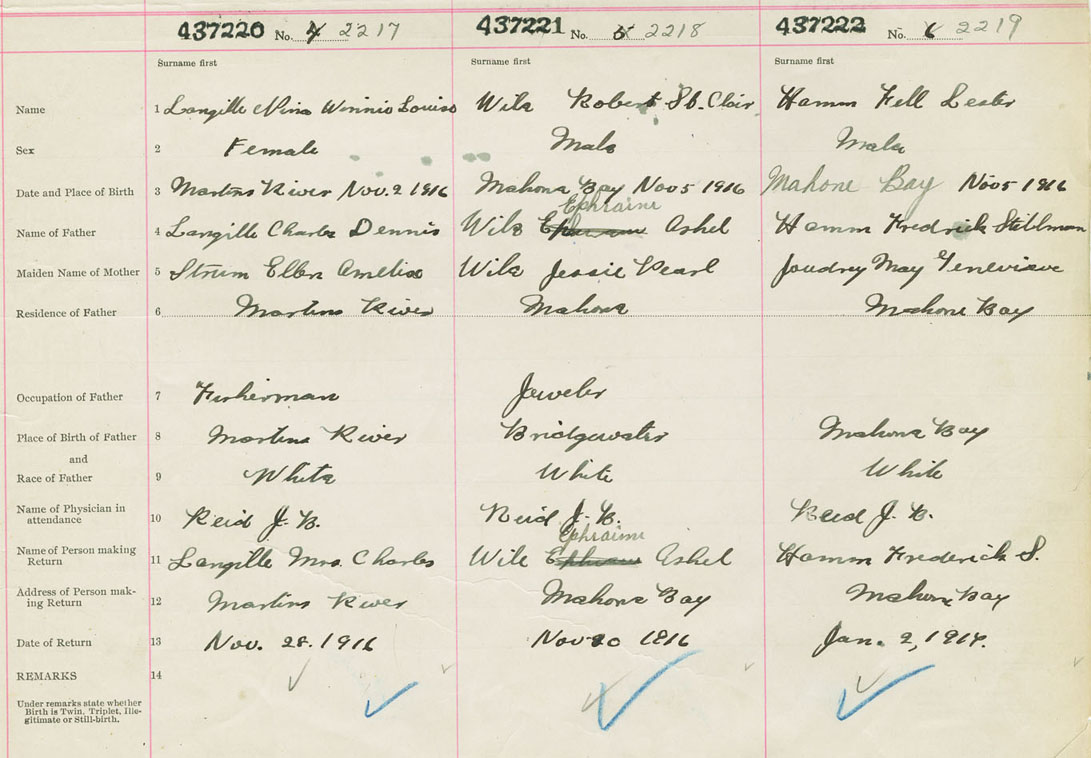 437220 No. 4 2217 437221 No. 5 2218 437222 No. 6 2219
Surname first Surname first Surname first
Name 1 Langille Nina Winnie Louise Wile Robert St. Clair Hamm Fell Lester
Sex 2 Female Male Male
Date and Place of Birth 3 Martins River Nov. 2 1916 Mahone Bay Nov 5 1916 Mahone Bay Nov 5 1916
Ephraime
Name of Father 4 Langille Charles Dennis Wile Ashel Hamm Fredrick Stillman
Maiden Name of Mother 5 Strum Ellen Amelia Wile Jessie Pearl Joudrey May Genevieve
Residence of Father 6 Martins River Mahone Mahone Bay
Occupation of Father 7 Fisherman Jeweler
Place of Birth of Father 8 Martins River Bridgewater Mahone Bay
and
Race of Father 9 White White White
Name of Physician in
attendance 10 Reid J. B. Reid J. B. Reid J. B.
Ephraime
Name of Person making
Return 11 Langille Mrs. Charles Wile Ashel Hamm Frederick S.
Address of Person mak-
ing Return 12 Martins River Mahone Bay Mahone Bay
Date of Return 13 Nov. 28. 1916 Nov 20 1816 Jan. 2, 1917.
REMARKS 14
Under remarks state whether
Birth is Twin, Triplet, Ille-
gitimate or Still-birth.